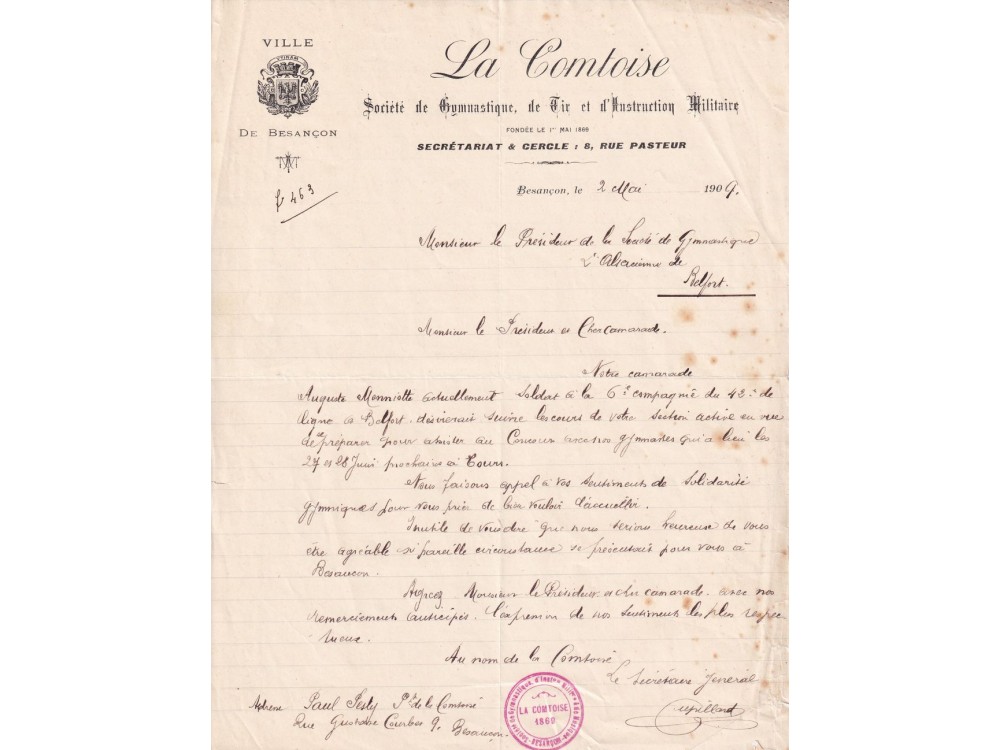 VILLE
UTINAM
DE BESANÇON
La Comtoise
Société de Gymnastique, de Tir et d'Instruction Militaire
FONDÉE LE 1er MAI 1869
SECRÉTARIAT & CERCLE : 8, RUE PASTEUR
463
Besançon, le 2 Mai 1909.
Monsieur le Président de la Société de Gymnastique
L'Alsacienne de
Belfort.
Monsieur le Président et Cher Camarade.
Notre camarade
Auguste Monniotte actuellement soldat à la 6e compagnie du 42e de
ligne à Belfort. désirerait suivre les cours de votre section active en vue
de se préparer pour assister au Concours avec nos gymnastes qui a lieu les
27 et 28 Juin prochains à Tours.
Nous faisons appel à vos sentiments de solidarité
gymniques pour vous prier de bien vouloir l'accueillir.
Inutile de vous dire que nous serions heureux de vous
être agréable si pareille circonstance se présentait pour vous à
Besançon.
Agréez Monsieur le Président et cher camarade avec nos
remerciements anticipés. l'expression de nos sentiments les plus respec
tueux.
Au nom de la Comtoise
Le Secrétaire Général
Cupillard
Adresse Paul Pt de la Comtoise
Rue Gustave Courbet 9. Besançon.
LA COMTOISE
1869